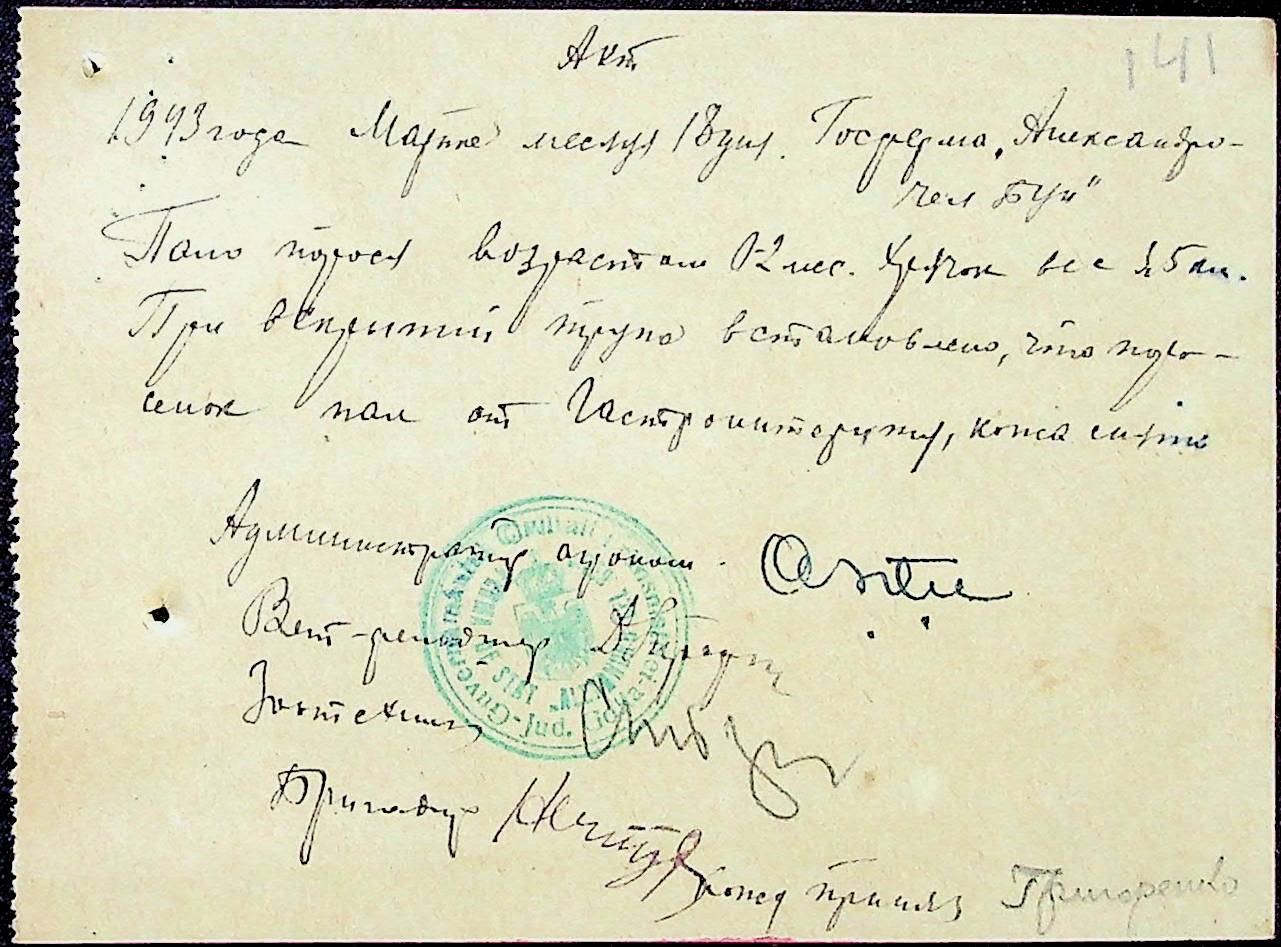 Акт
141
1943 года Марта месяця 18 дня. Госферма „Александро-
чел Бун"
Пало порося возрастом 2 мес. вес 15 кил.
При вскрытии трупа встановлено, что поро-
сенок пал от Гастроинтерита, кожа снята
Администратор агроном.
Вет-фельдшер
Зоотехник
Бригадир
кожу принял Григоренко